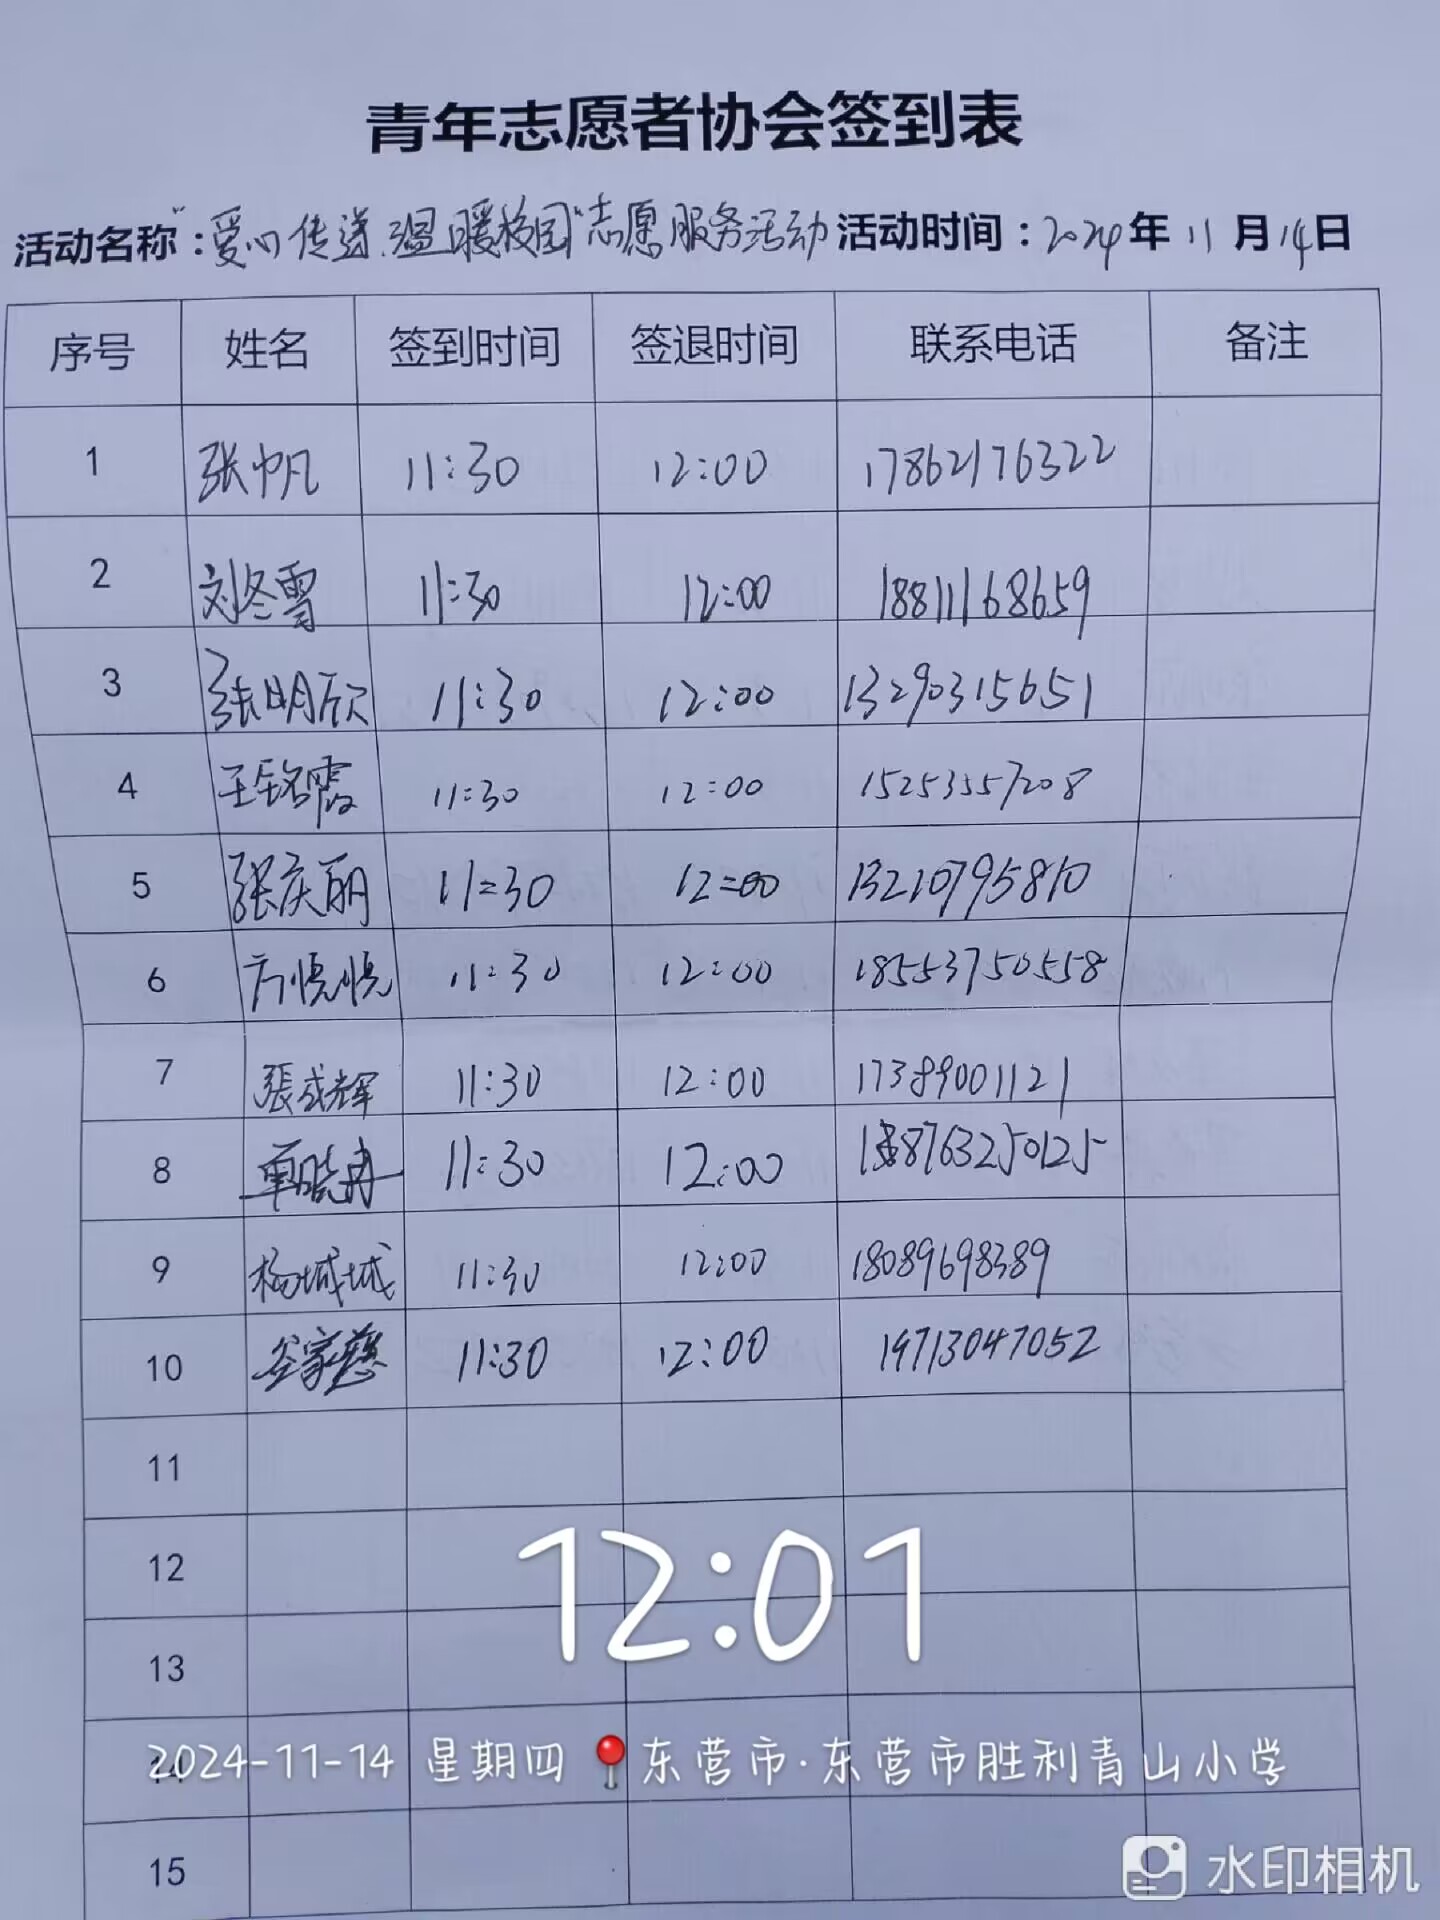 青年志愿者协会签到表
活动名称:"爱心传递.温暖校园"志愿服务活动 活动时间:2024年11月14日
序号 姓名 签到时间 签退时间 联系电话 备注
1 张帆 11:30 12:00 17862176322
2 刘冬雪 11:30 12:00 18811168659
3 张明欣 11:30 12:00 13290315651
4 王铭霞 11:30 12:00 15253557208
5 张庆丽 11:30 12:00 13210795810
6 11:30 12:00 18553750558
7 張成辉 11:30 12:00 17389001121
8 覃晓冉 11:30 12:00
9 杨城城 11:30 12:00 18089698389
10 谷家慧 11:30 12:00 14713047052
11
12
12:01
13
14
2024-11-14 星期四 东营市·东营市胜利青山小学
15
水印相机